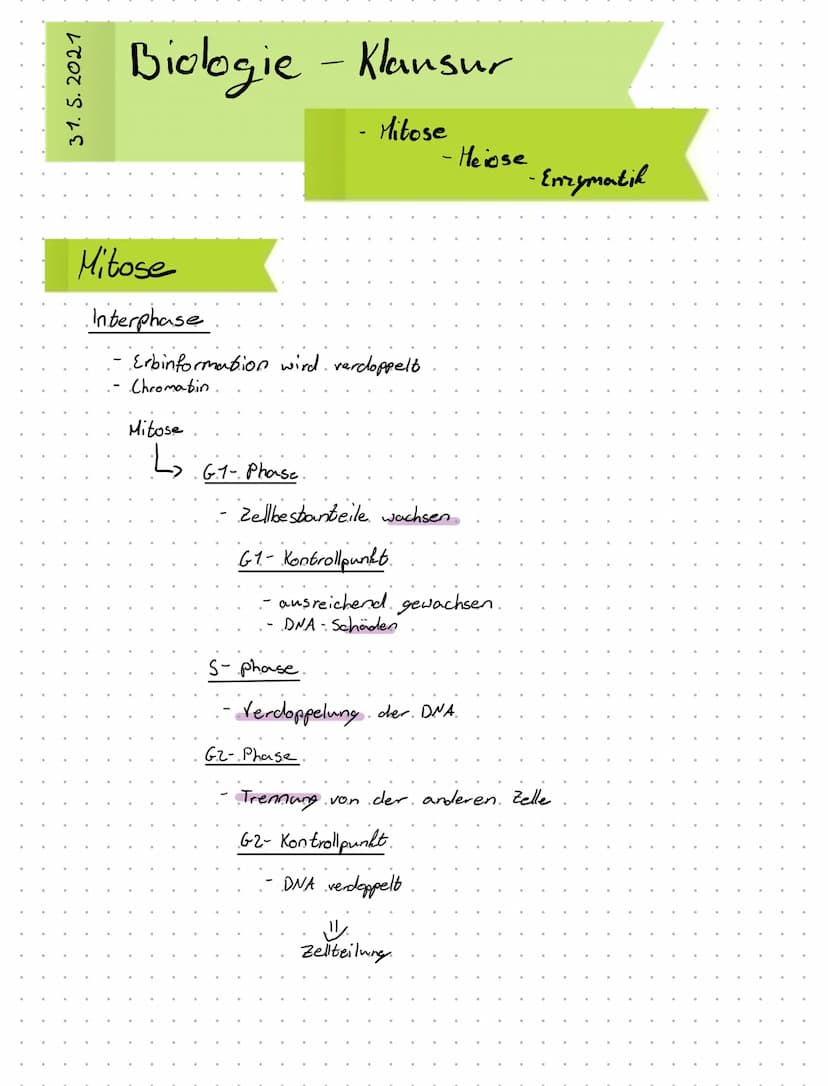 31.5.2021
Biologie - Klausur
- Mitose
- Meiose
- Enzymatik
Mitose
Interphase
- Erbinformation wird verdoppelt
- Chromatin
Mitose
↳ G1-Phase
- Zellbestanteile wachsen
G1-Kontrollpunkt
- ausreichend gewachsen
- DNA-Schäden
S-phase
- Verdoppelung der DNA
G2-Phase
- Trennung von der anderen Zelle
G2-Kontrollpunkt
- DNA verdoppelt
⇓
Zellteilung